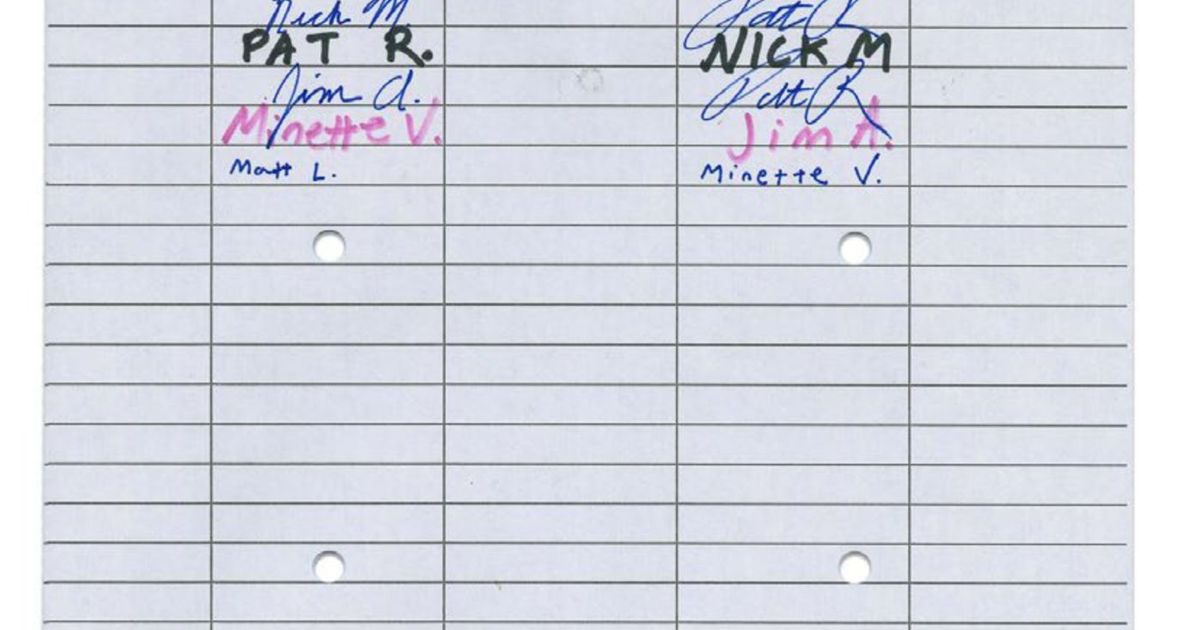 Nick M. Pat R
PAT R. NICK M
Jim A. Pat R
Minette V. Jim A.
Matt L. Minette V.